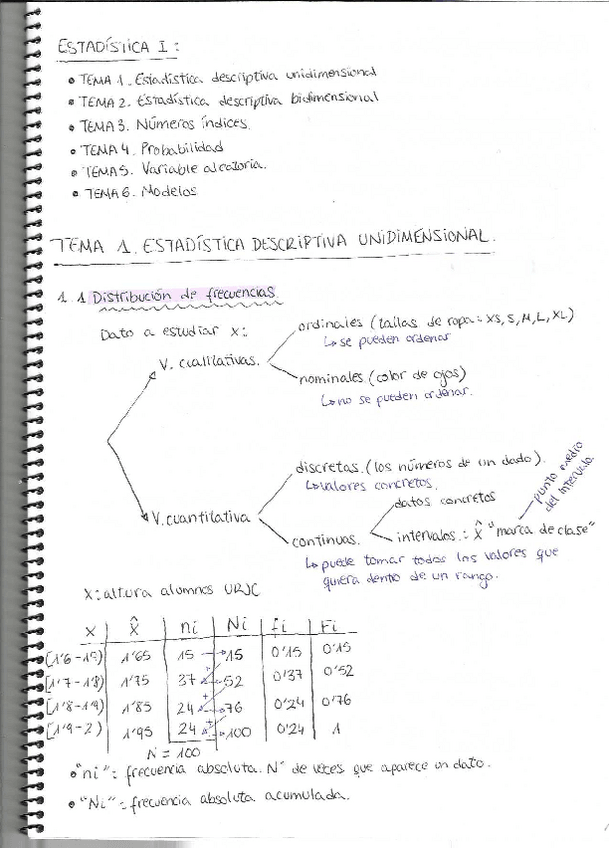 ESTADÍSTICA I:
• TEMA 1. Estadística descriptiva unidimensional
• TEMA 2. Estadística descriptiva bidimensional
• TEMA 3. Números índices.
• TEMA 4. Probabilidad
• TEMA 5. Variable aleatoria.
• TEMA 6. Modelos
TEMA 1. ESTADÍSTICA DESCRIPTIVA UNIDIMENSIONAL.
1.1 Distribución de frecuencias
Dato a estudiar x:
ordinales (tallas de ropa = XS, S, M, L, XL)
↳ se pueden ordenar
V. cualitativas.
nominales. (color de ojos)
↳ no se pueden ordenar.
discretas. (los números de un dado).
↳ valores concretos.
V. cuantitativa
datos concretos
continuas.
intervalos.: x̂ "marca de clase"
punto medio del intervalo.
↳ puede tomar todos los valores que
quiera dentro de un rango.
X: altura alumnos URJC
x | x̂ | ni | Ni | fi | Fi
1'65 | 15 | 15 | 0'15 | 0'15
[1'7-1'8) | 1'75 | 37 | 52 | 0'37 | 0'52
[1'8-1'9) | 1'85 | 24 | 76 | 0'24 | 0'76
[1'9-2) | 1'95 | 24 | 100 | 0'24 | 1
N = 100
• "ni": frecuencia absoluta. Nº de veces que aparece un dato.
• "Ni" = frecuencia absoluta acumulada.